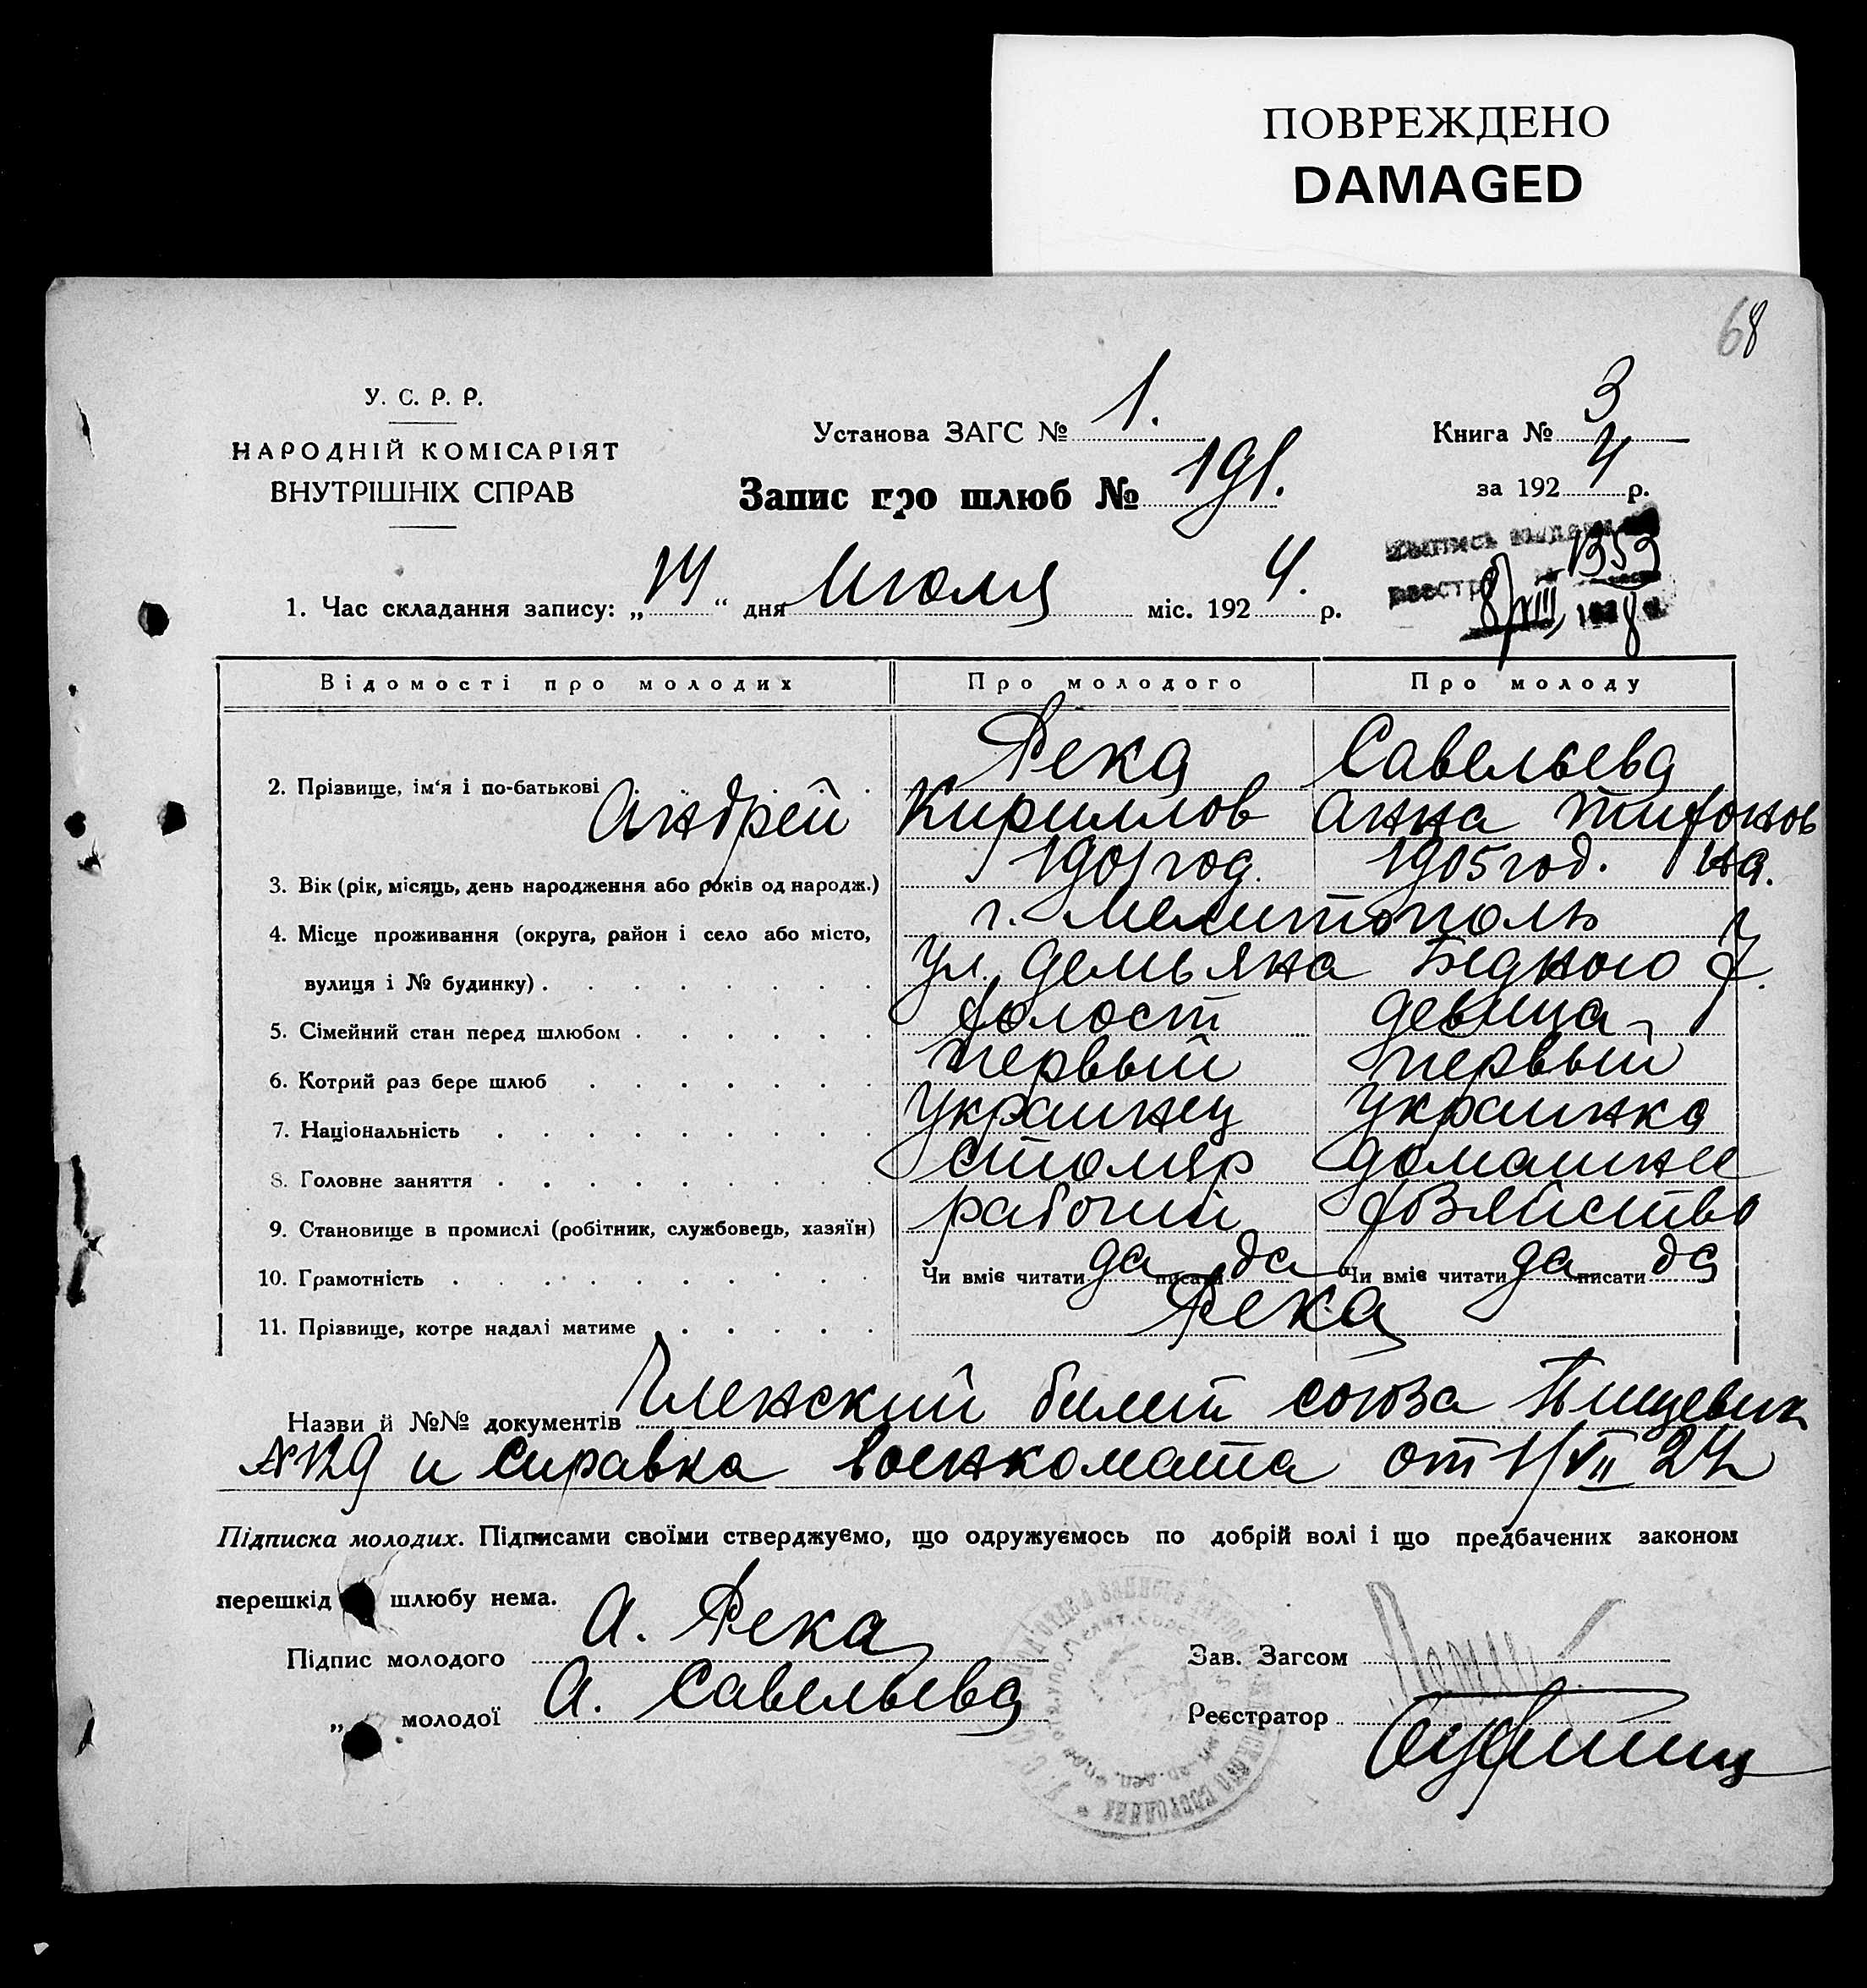 ПОВРЕЖДЕНО
DAMAGED
68
У. С. Р. Р.
НАРОДНІЙ КОМІСАРІЯТ
ВНУТРІШНІХ СПРАВ
Установа ЗАГС № 1.
Книга № 3
Запис про шлюб № 191.
за 1924 р.
1353
реестр
8/XII 1928
1. Час складання запису: „14“ дня Июля міс. 1924. р.
Відомості про молодих Про молодого Про молоду
2. Прізвище, ім'я і по-батькові Река Савельева
Андрей Кириллов Анна Тихонов
на.
3. Вік (рік, місяць, день народження або років од народж.) 1901 год. 1905 год.
4. Місце проживання (округа, район і село або місто, г. Мелитополь
вулиця і № будинку) ул. Демьяна Бедного 7.
5. Сімейний стан перед шлюбом холост девица
6. Котрий раз бере шлюб первый первый
7. Національність Украинец Украинка
8. Головне заняття столяр домашнее
9. Становище в промислі (робітник, службовець, хазяїн) рабочий хозяйство
10. Грамотність Чи вміє читати да писати да Чи вміє читати да писати да
11. Прізвище, котре надалі матиме Река
Назви й №№ документів Членский билет союза Пищевик
№129 и справка военкомата от 1/VII 24
Підписка молодих. Підписами своїми стверджуємо, що одружуємось по добрій волі і що предбачених законом
перешкід шлюбу нема.
Підпис молодого А. Река
Зав. Загсом
„ молодої А. Савельева
Реєстратор